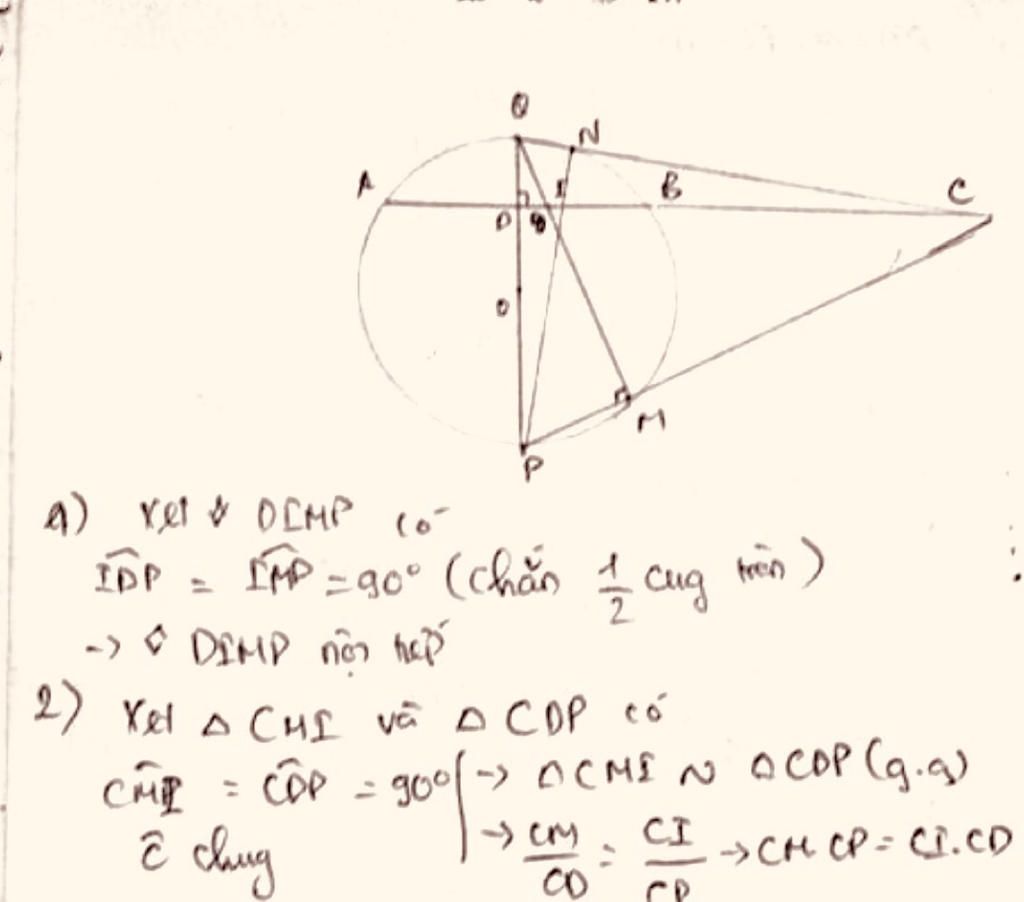 Q
N
A
I
B
C
D
O
M
P
a) Xét ◊ DIMP có
IDP = IMP = 90° (chắn 1/2 cug tròn)
-> ◊ DIMP nội tiếp
2) Xét Δ CMI và Δ CDP có
CMI = CDP = 90° -> Δ CMI ~ Δ CDP (g.g)
Ĉ chug -> CM/CD = CI/CP -> CM CP = CI.CD